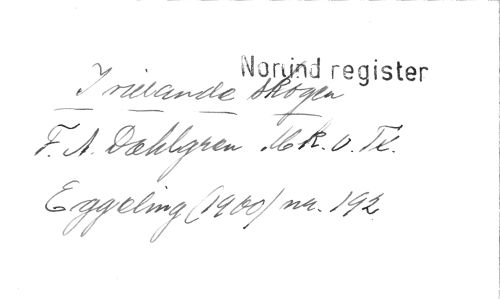 Norlind register
I rievande skogen
F. A. Dahlgren Mk. o. Tx.
Eggeling (1900) nr. 192